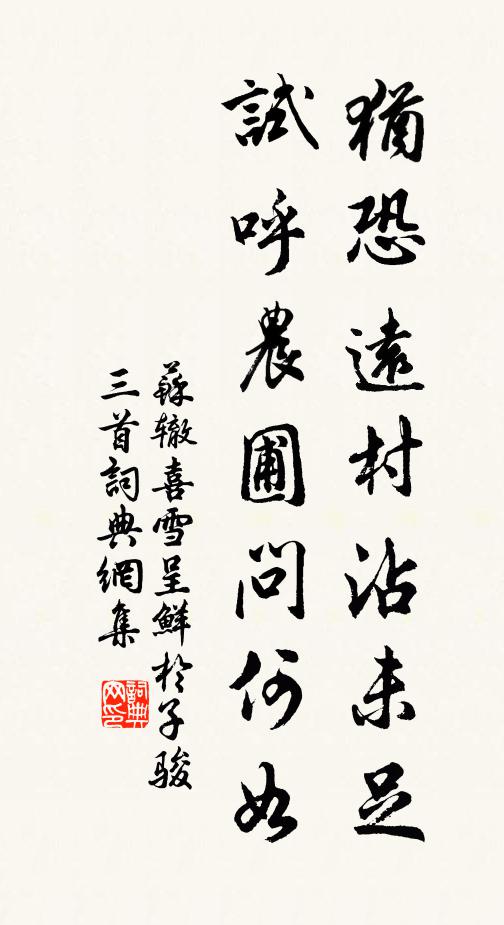 猶恐遠村沾未足
試呼農圃問何如
蘇辙喜雪呈鮮於子駿
三首詞典網集
詞典网印